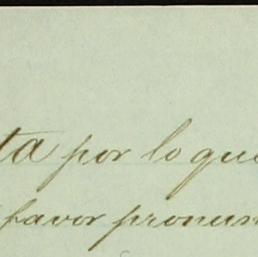 ta por lo que
favor pronun